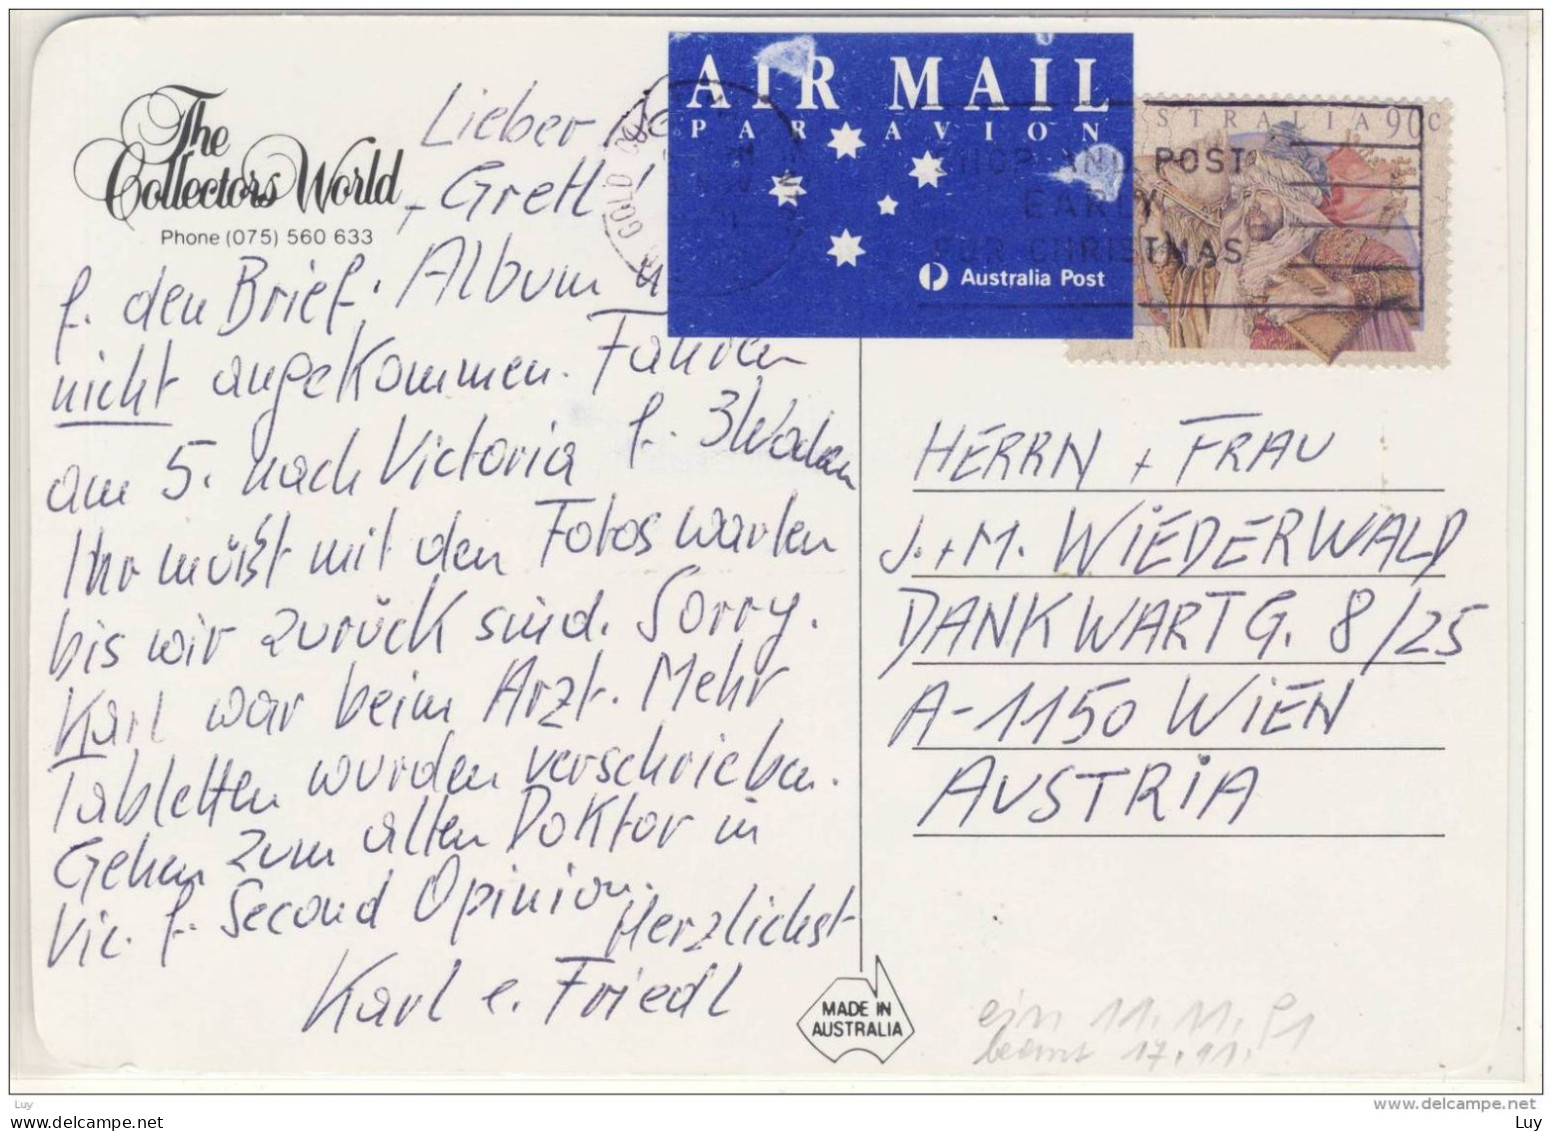 The
Collectors World
Phone (075) 560 633
Lieber
+ Gretl!
f. den Brief. Album
nicht angekommen. Fahren
am 5. nach Victoria f. 3 Wochen
Ihr müßt mit den Fotos warten
bis wir zurück sind. Sorry.
Karl war beim Arzt. Mehr
Tabletten wurden verschrieben.
Gehen zum alten Doktor in
Vic. f. Second Opinion.
Herzlichst
Karl e. Friedl
AIR MAIL
PAR AVION
Australia Post
AUSTRALIA 90c
SHOP AND POST
EARLY
FOR CHRISTMAS
GOLD COAST
HERRN + FRAU
J. + M. WIEDERWALD
DANKWARTG. 8/25
A-1150 WIEN
AUSTRIA
MADE IN
AUSTRALIA
ein 11.11.91
beant 17.11.
Luy
www.delcampe.net
Luy
Luy